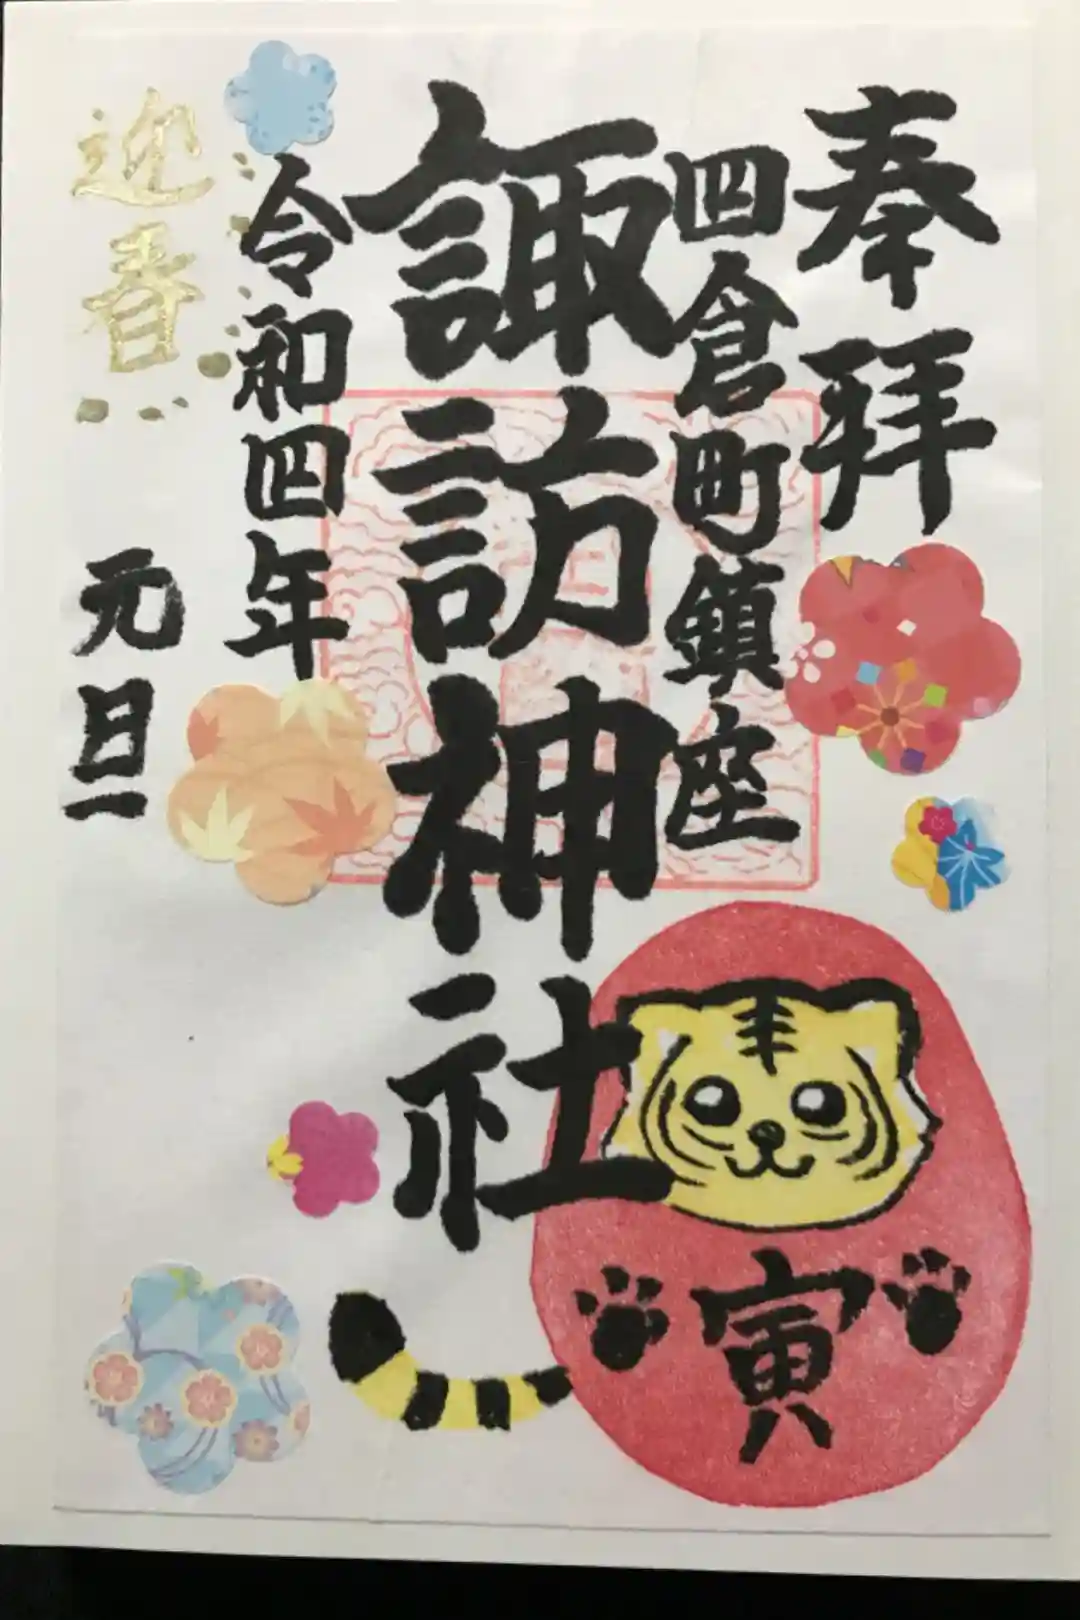 奉拝
四倉町鎮座
諏訪神社
令和四年
迎春
元旦
寅